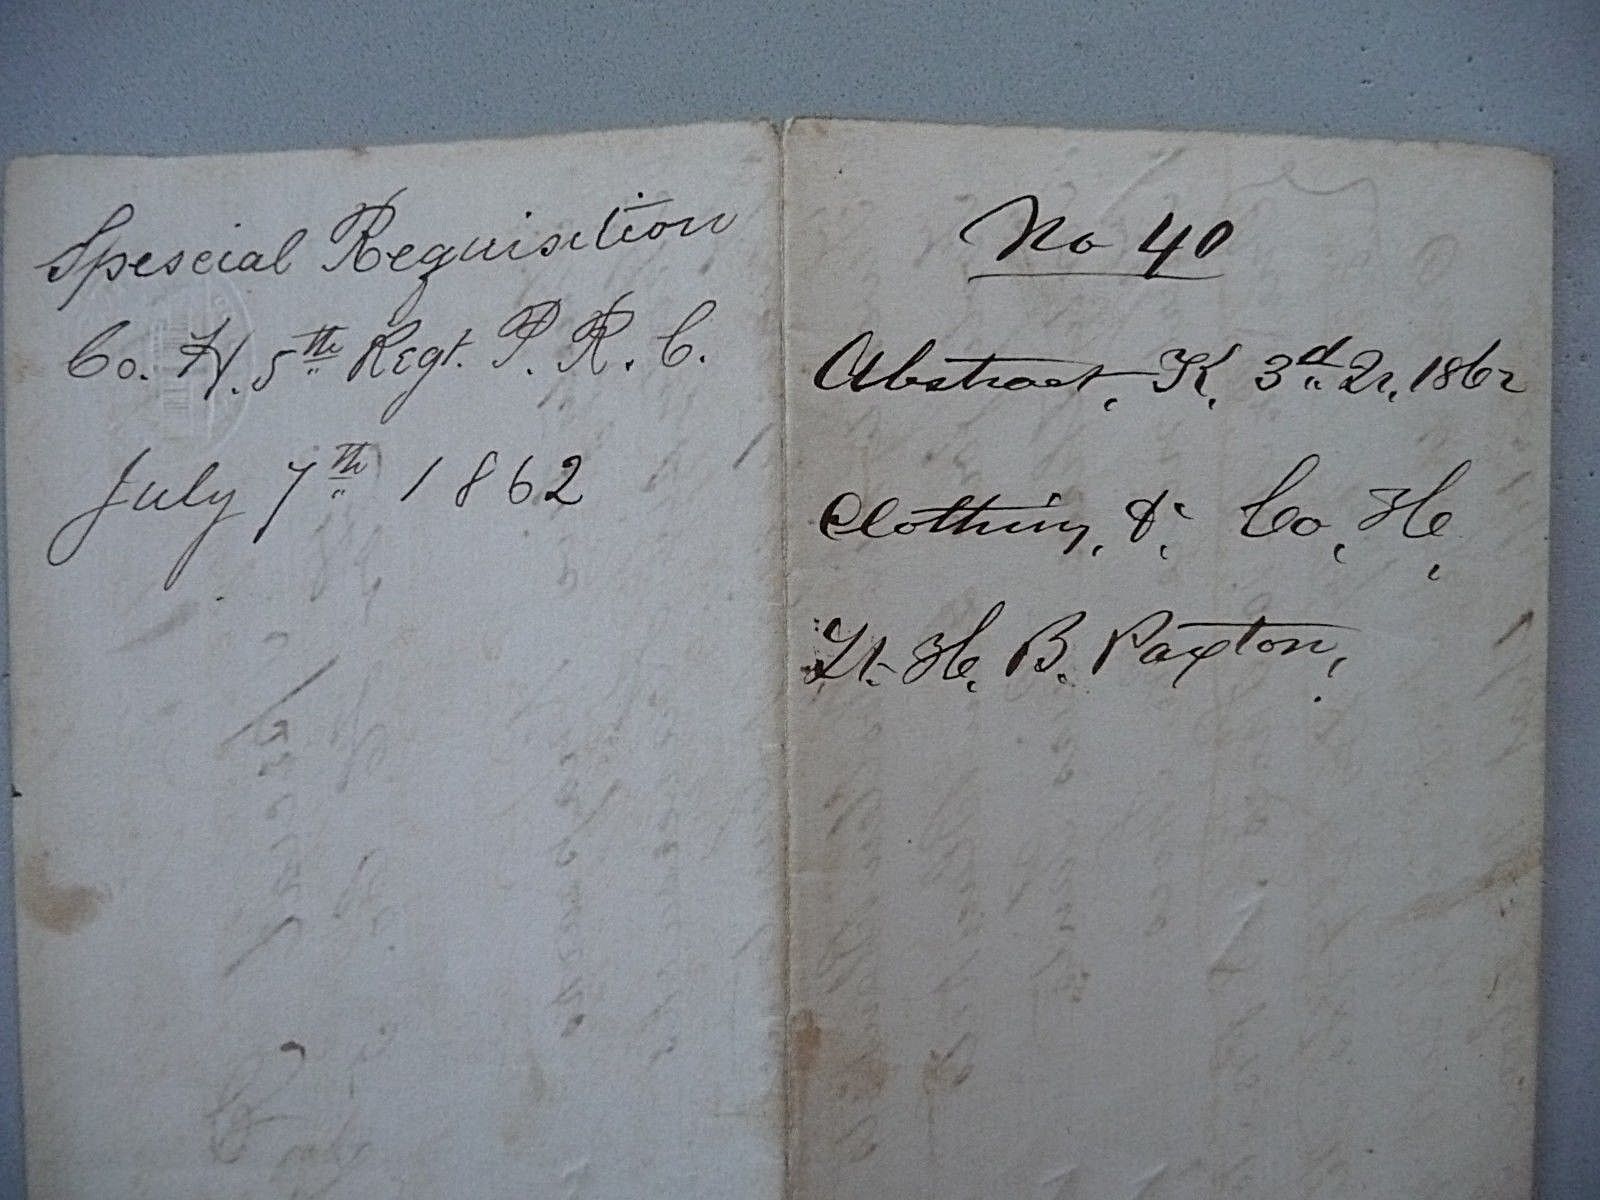 Speseial Requisition
Co. H. 5th Regt. P. R. C.
July 7th 1862
No 40
Abstract, K, 3rd Qr, 1862
Clothing, &c Co, H,
Lt. H. B. Paxton,